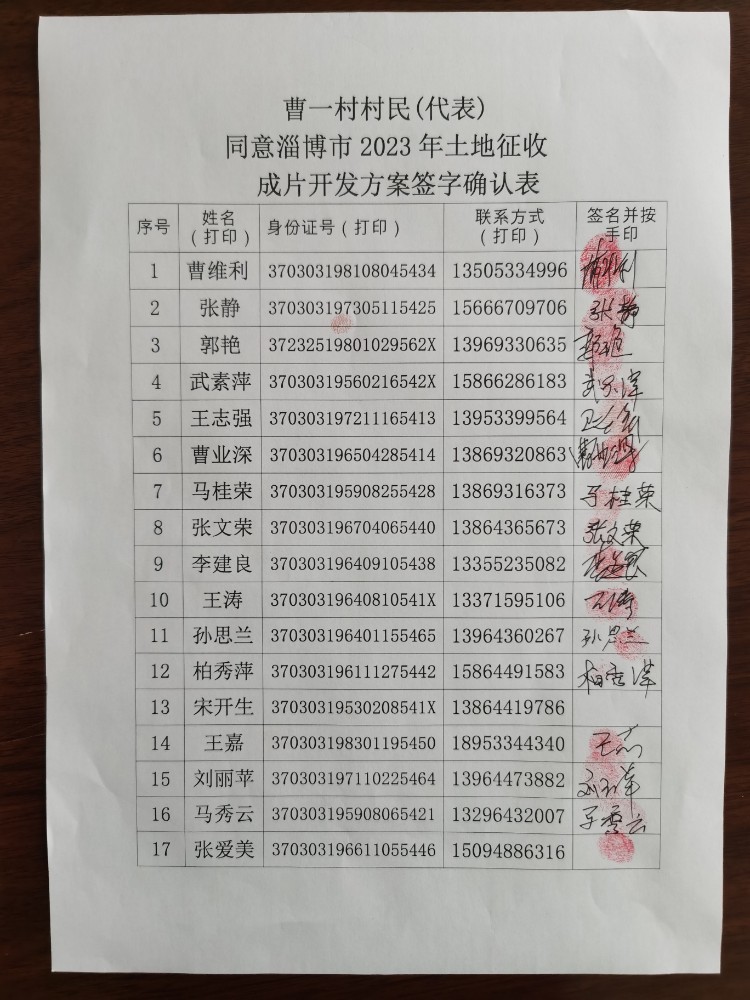 曹一村村民(代表)
同意淄博市 2023 年土地征收
成片开发方案签字确认表
序号 姓名(打印) 身份证号(打印) 联系方式(打印) 签名并按手印
1 曹维利 370303198108045434 13505334996
2 张静 370303197305115425 15666709706 张静
3 郭艳 37232519801029562X 13969330635 郭艳
4 武素萍 37030319560216542X 15866286183
5 王志强 370303197211165413 13953399564
6 曹业深 370303196504285414 13869320863
7 马桂荣 370303195908255428 13869316373 马桂荣
8 张文荣 370303196704065440 13864365673 张文荣
9 李建良 370303196409105438 13355235082
10 王涛 37030319640810541X 13371595106 王涛
11 孙思兰 370303196401155465 13964360267 孙思兰
12 柏秀萍 370303196111275442 15864491583 柏秀萍
13 宋开生 37030319530208541X 13864419786
14 王嘉 370303198301195450 18953344340
15 刘丽苹 370303197110225464 13964473882
16 马秀云 370303195908065421 13296432007 马秀云
17 张爱美 370303196611055446 15094886316